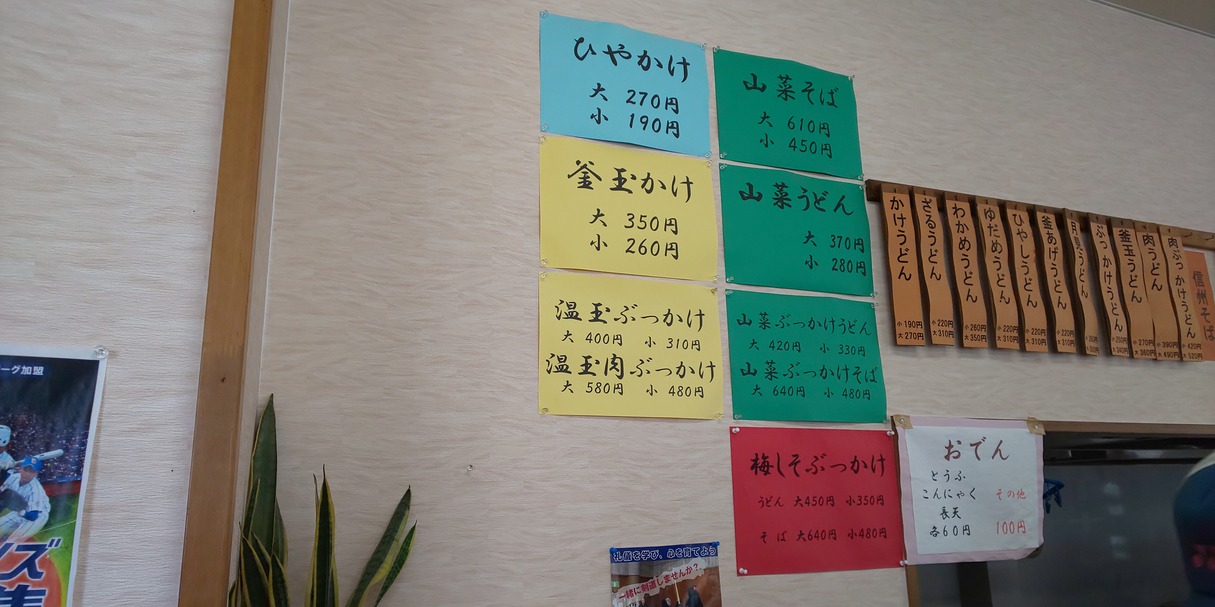 ひやかけ
大 270円
小 190円
釜玉かけ
大 350円
小 260円
温玉ぶっかけ
大 400円 小 310円
温玉肉ぶっかけ
大 580円 小 480円
山菜そば
大 610円
小 450円
山菜うどん
大 370円
小 280円
山菜ぶっかけうどん
大 420円 小 330円
山菜ぶっかけそば
大 640円 小 480円
梅しそぶっかけ
うどん 大450円 小350円
そば 大640円 小480円
おでん
とうふ
こんにゃく
長天
各60円
その他
100円
かけうどん
小190円
大270円
ざるうどん
小220円
大310円
わかめうどん
小260円
大350円
ゆだめうどん
小220円
大310円
ひやしうどん
小220円
大310円
釜あげうどん
小220円
大310円
月見うどん
ぶっかけうどん
釜玉うどん
肉うどん
肉ぶっかけうどん
信州そば
ーグ加盟
礼儀を学び、心を育てよう
一緒に剣道しませんか？